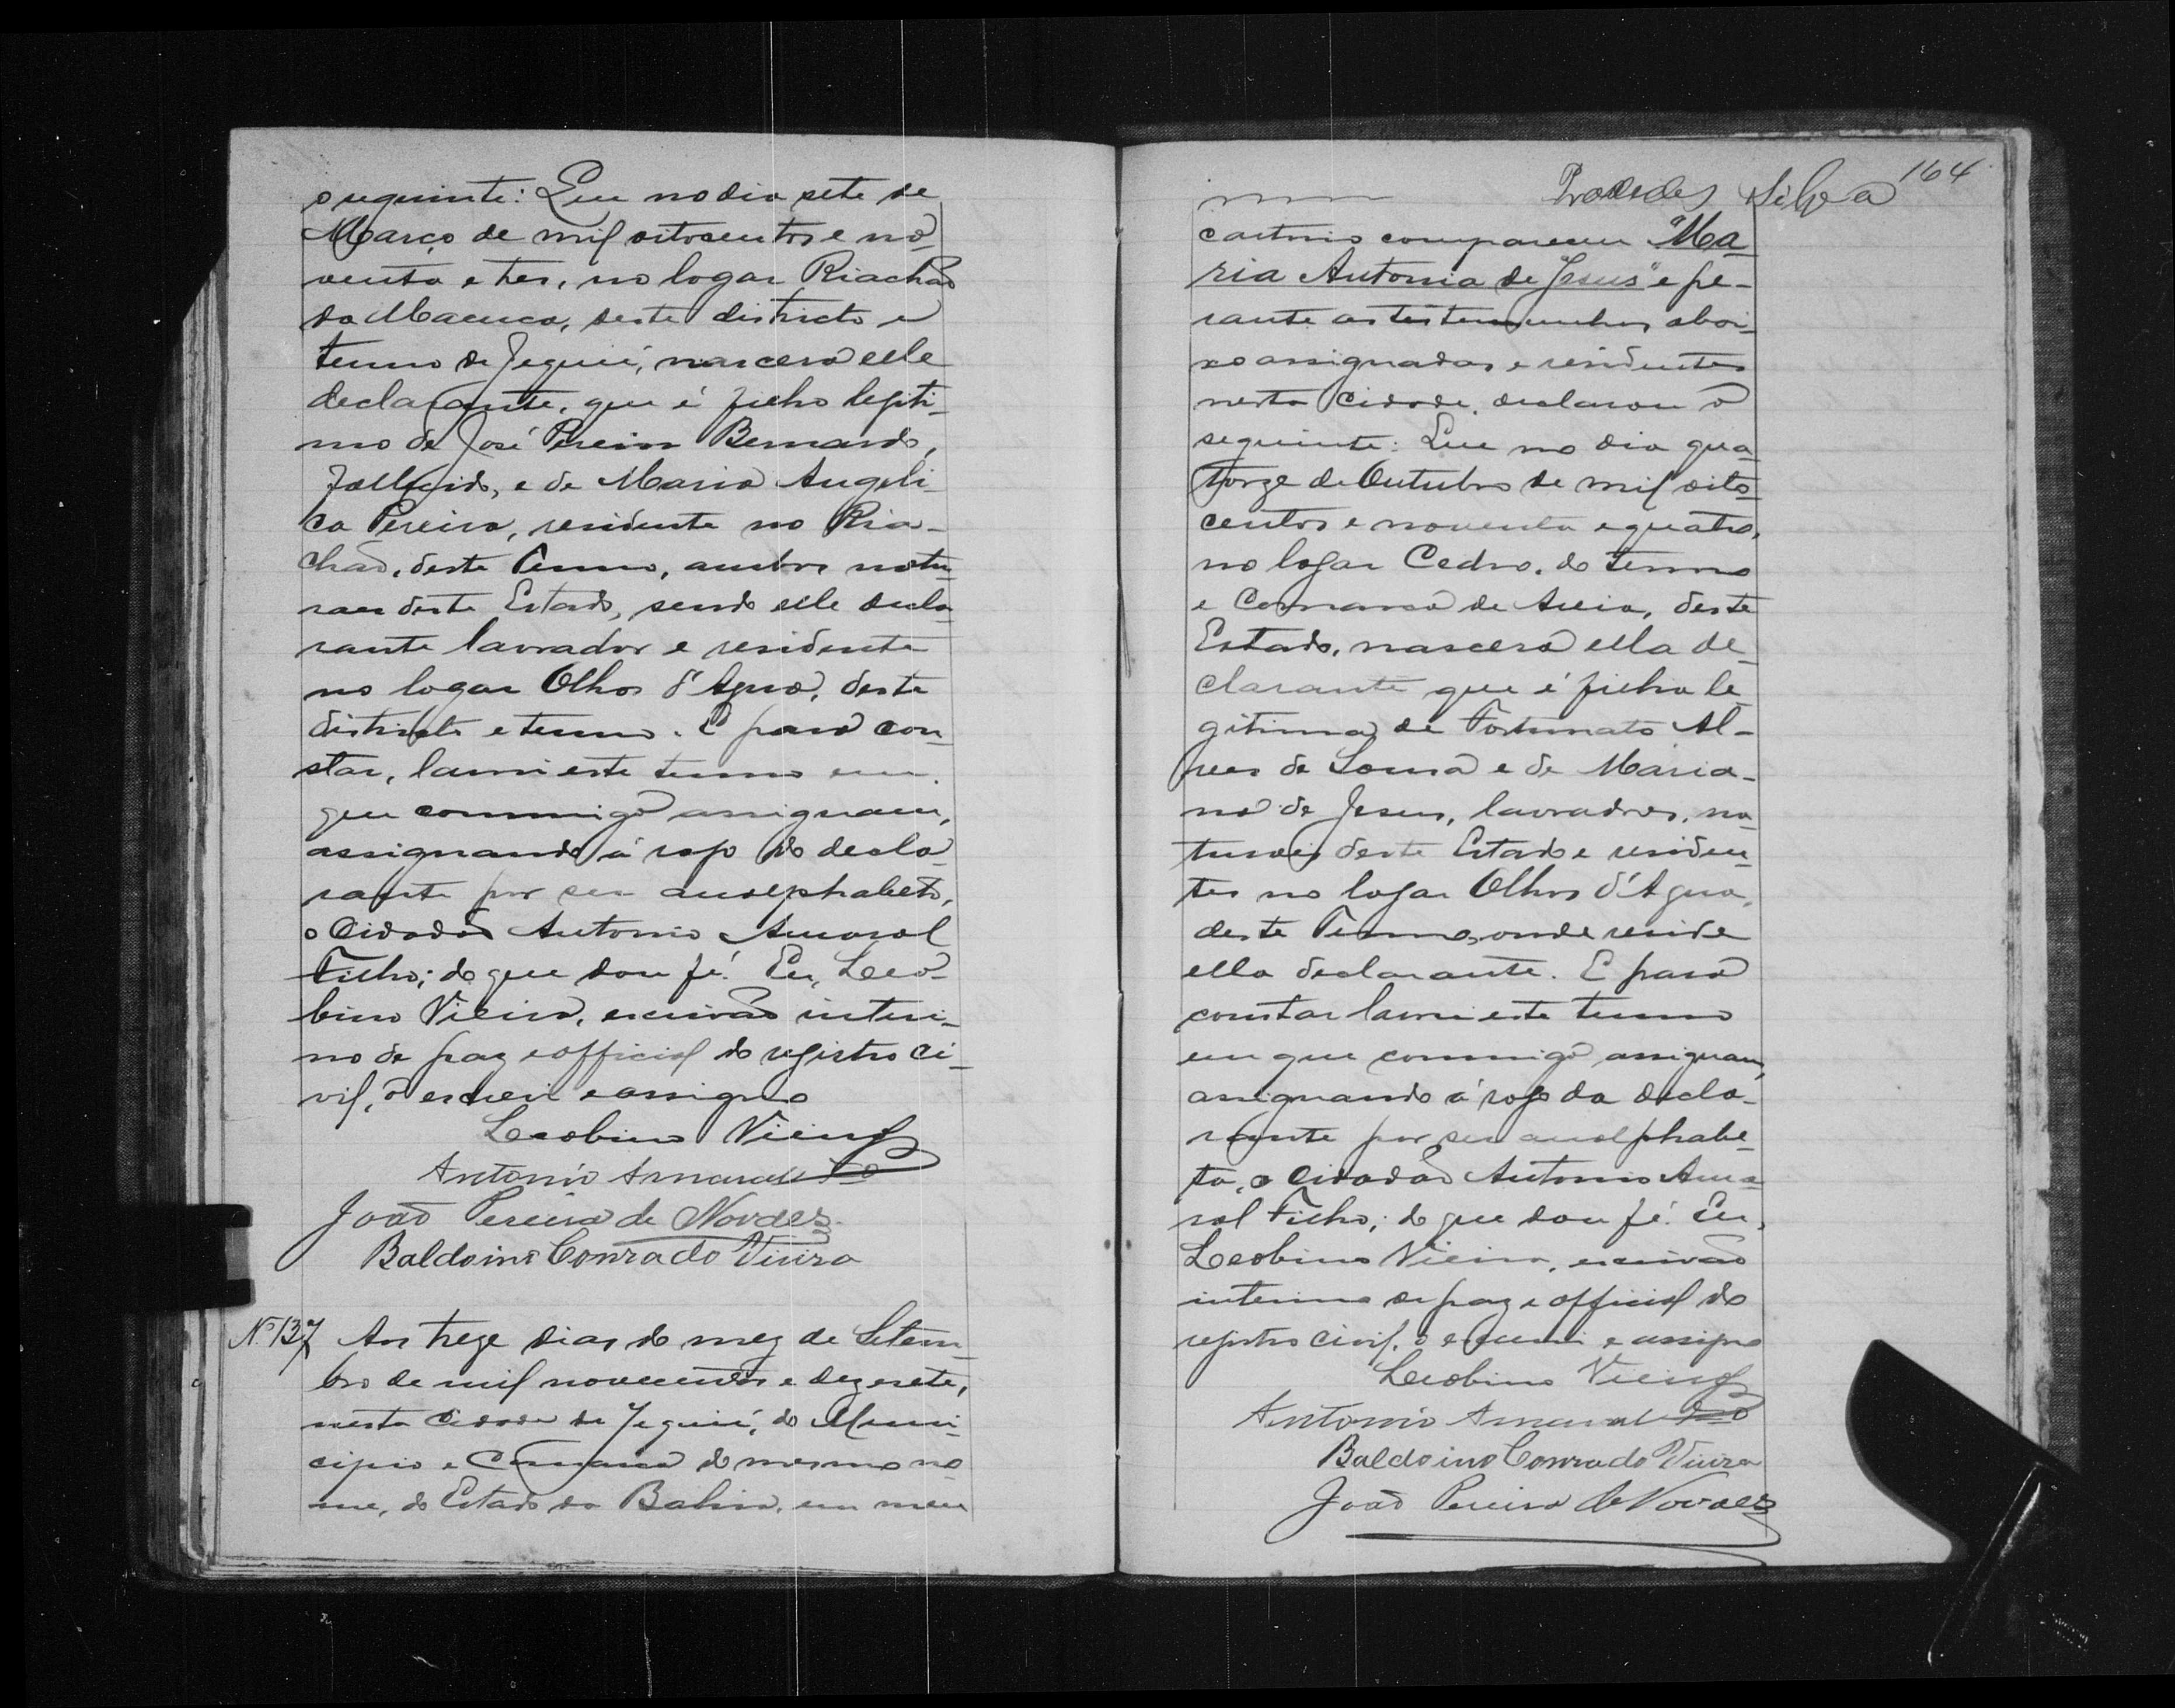 o seguinte: Que no dia sete de
Março de mil oitocentos e no-
venta e tres, no logar Riachão
da Macuca, deste districto e
termo de Jequié, nascera elle
declarante, que é filho legiti-
mo de José Pereira Bernardo,
fallecido, e de Maria Angeli-
ca Pereira, residente no Ria-
chão, deste Termo, ambos natu-
raes deste Estado, sendo elle decla-
rante lavrador e residente
no logar Olhos d'Agua, deste
districto e termo. E para con-
star, lavrei este termo em
que commigo assignam,
assignando á rogo do decla-
rante por ser analphabeto,
o Cidadão Antonio Amaral
Filho; do que dou fé. Eu, Leo-
bino Vieira, escrivão interi-
no de paz e official do registro ci-
vil, o escrevi e assigno
Leobino Vieira
Antonio Amaral Fo
João Pereira de Novaes
Baldoino Conrado Vieira
N. 137 Aos treze dias do mez de Setem-
bro de mil novecentos e dezesete,
nesta Cidade de Jequié, do Muni-
cipio e Comarca do mesmo no-
me, do Estado da Bahia, em meu
164
Silva
cartorio compareceu "Ma-
ria Antonia de Jesus" e pe-
rante as testemunhas abai-
xo assignadas e residentes
nesta Cidade, declarou o
seguinte: Que no dia qua-
torze de Outubro de mil oito-
centos e noventa e quatro,
no logar Cedro, do termo
e Comarca de Areia, deste
Estado, nascera ella de-
clarante que é filha le-
gitima de Fortunato Al-
ves de Souza e de Maria-
na de Jesus, lavradores, na-
turaes deste Estado e residen-
tes no logar Olhos d'Agua,
deste Termo, onde reside
ella declarante. E para
constar lavrei este termo
em que commigo assignam,
assignando á rogo da decla-
rante por ser analphabe-
ta, o Cidadão Antonio Ama-
ral Filho; do que dou fé. Eu,
Leobino Vieira, escrivão
interino de paz e official do
registro civil, o escrevi e assigno
Leobino Vieira
Antonio Amaral Fo
Baldoino Conrado Vieira
João Pereira de Novaes